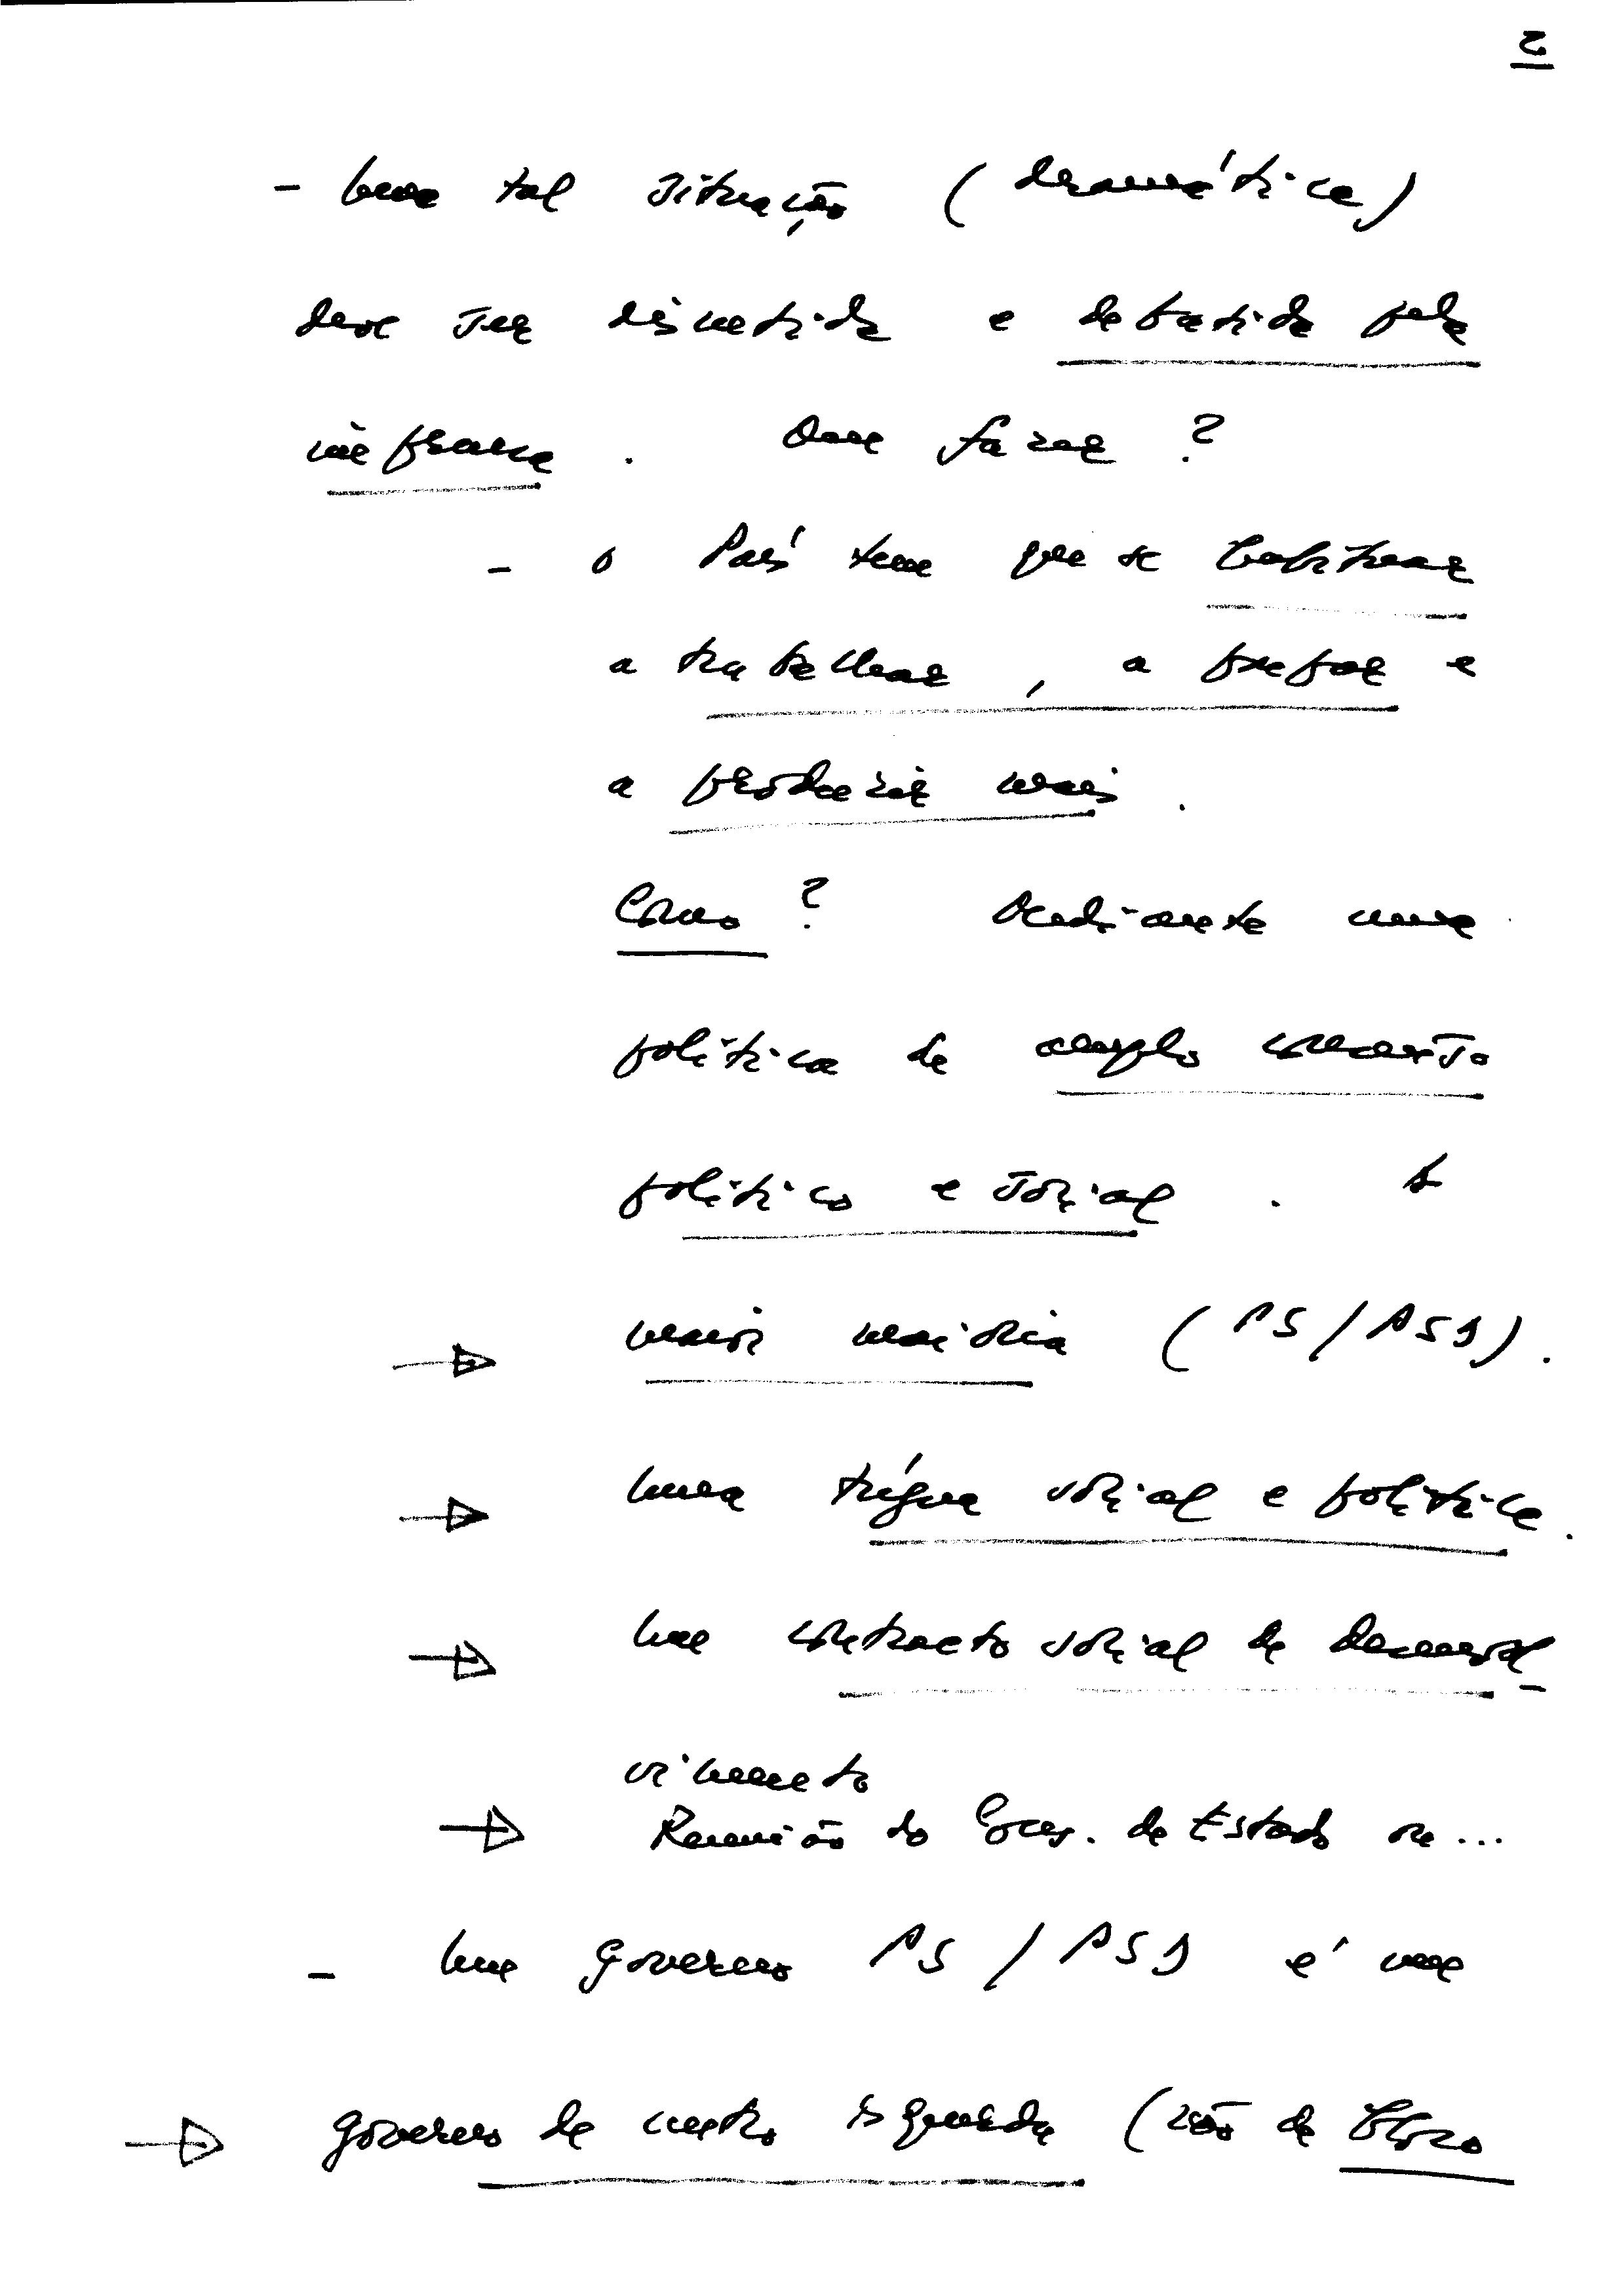 2
- Uma tal situação (dramática)
deve ser discutida e debatida pela
imprensa. Que fazer?
- o País tem que se habituar
a trabalhar, a poupar e
a produzir mais.
Como? Mediante uma
política de amplo consenso
político e social. A
maior maioria (PS/PSD).
Uma trégua social e política.
Um contracto social de desenvol-
vimento
Reunião do Cons. de Estado ou...
- Um governo PS/PSD é um
governo de centro esquerda (não de bloco